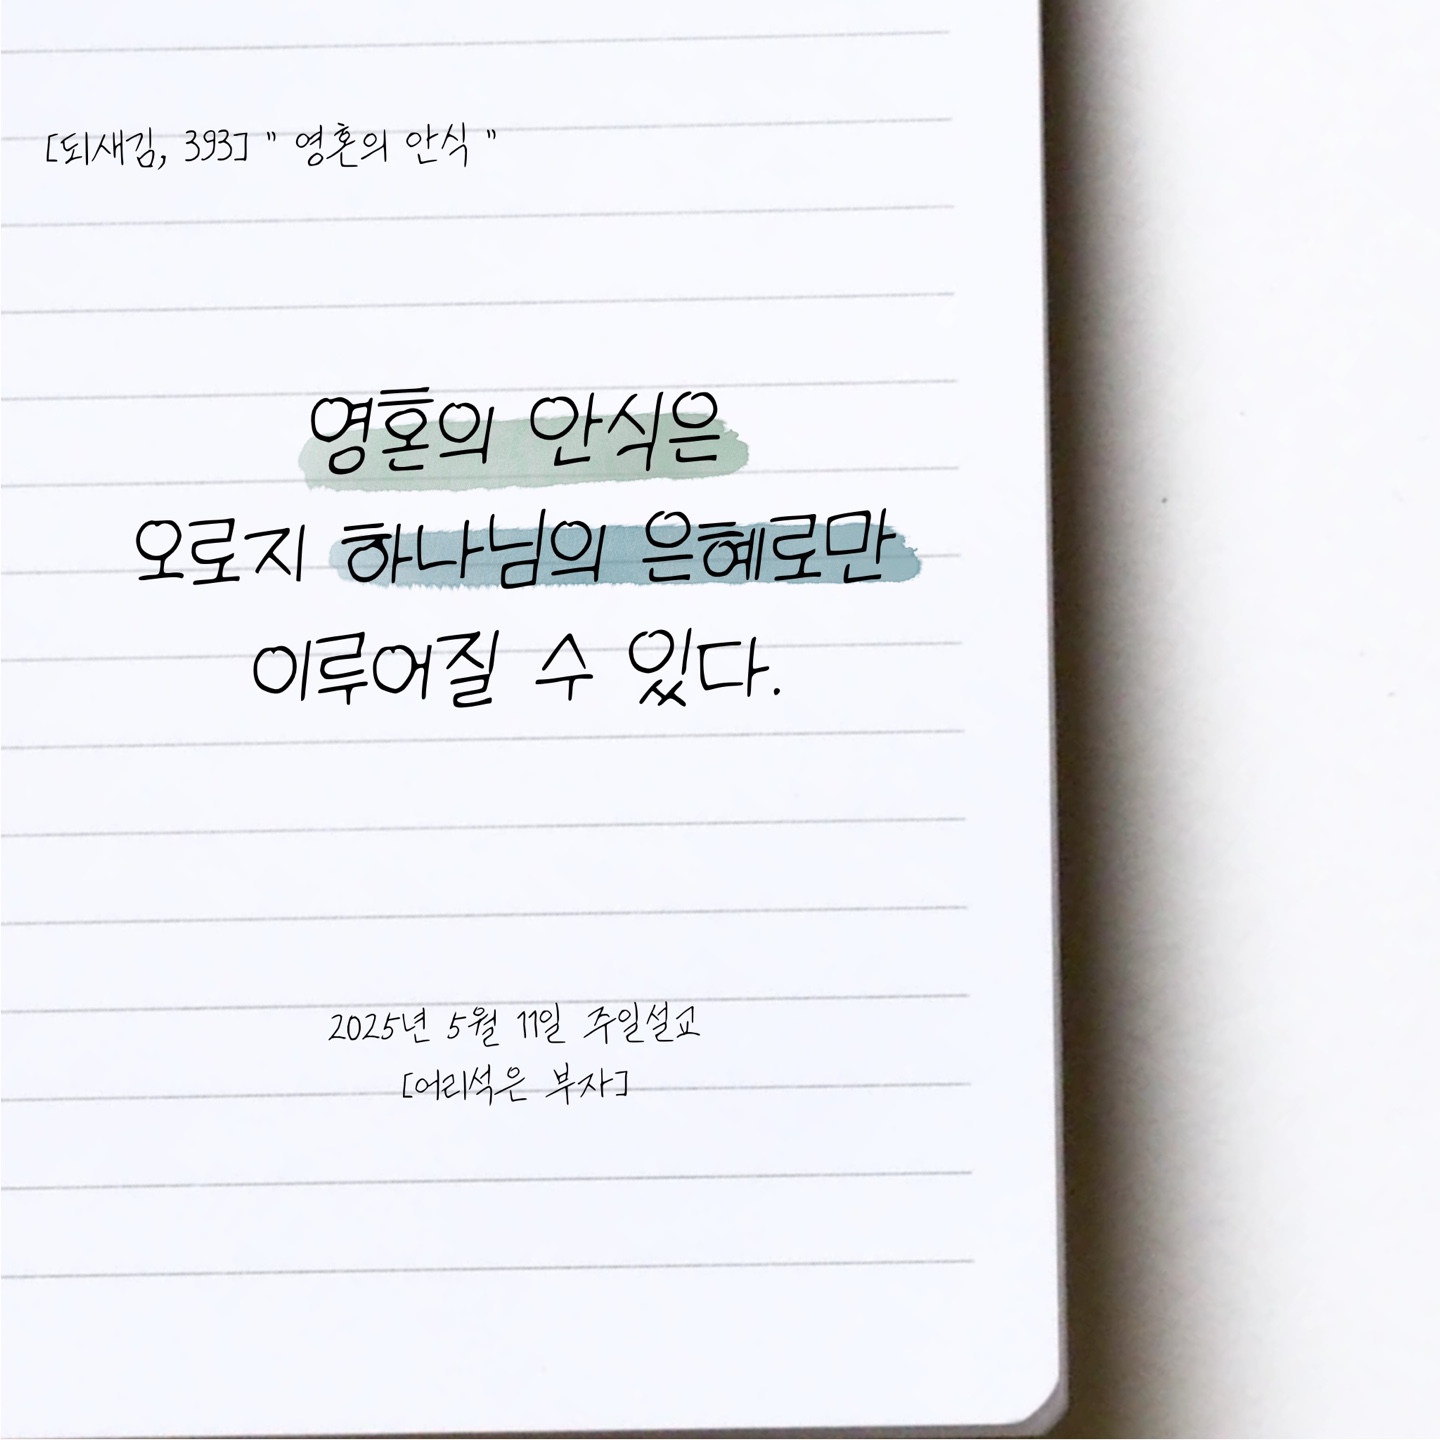 [되새김, 393] " 영혼의 안식 "
영혼의 안식은
오로지 하나님의 은혜로만
이루어질 수 있다.
2025년 5월 11일 주일설교
[어리석은 부자]